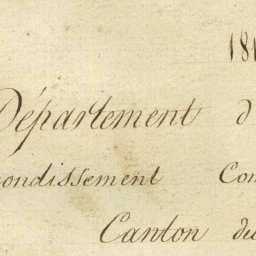 18
Département d
ondissement Com
Canton du